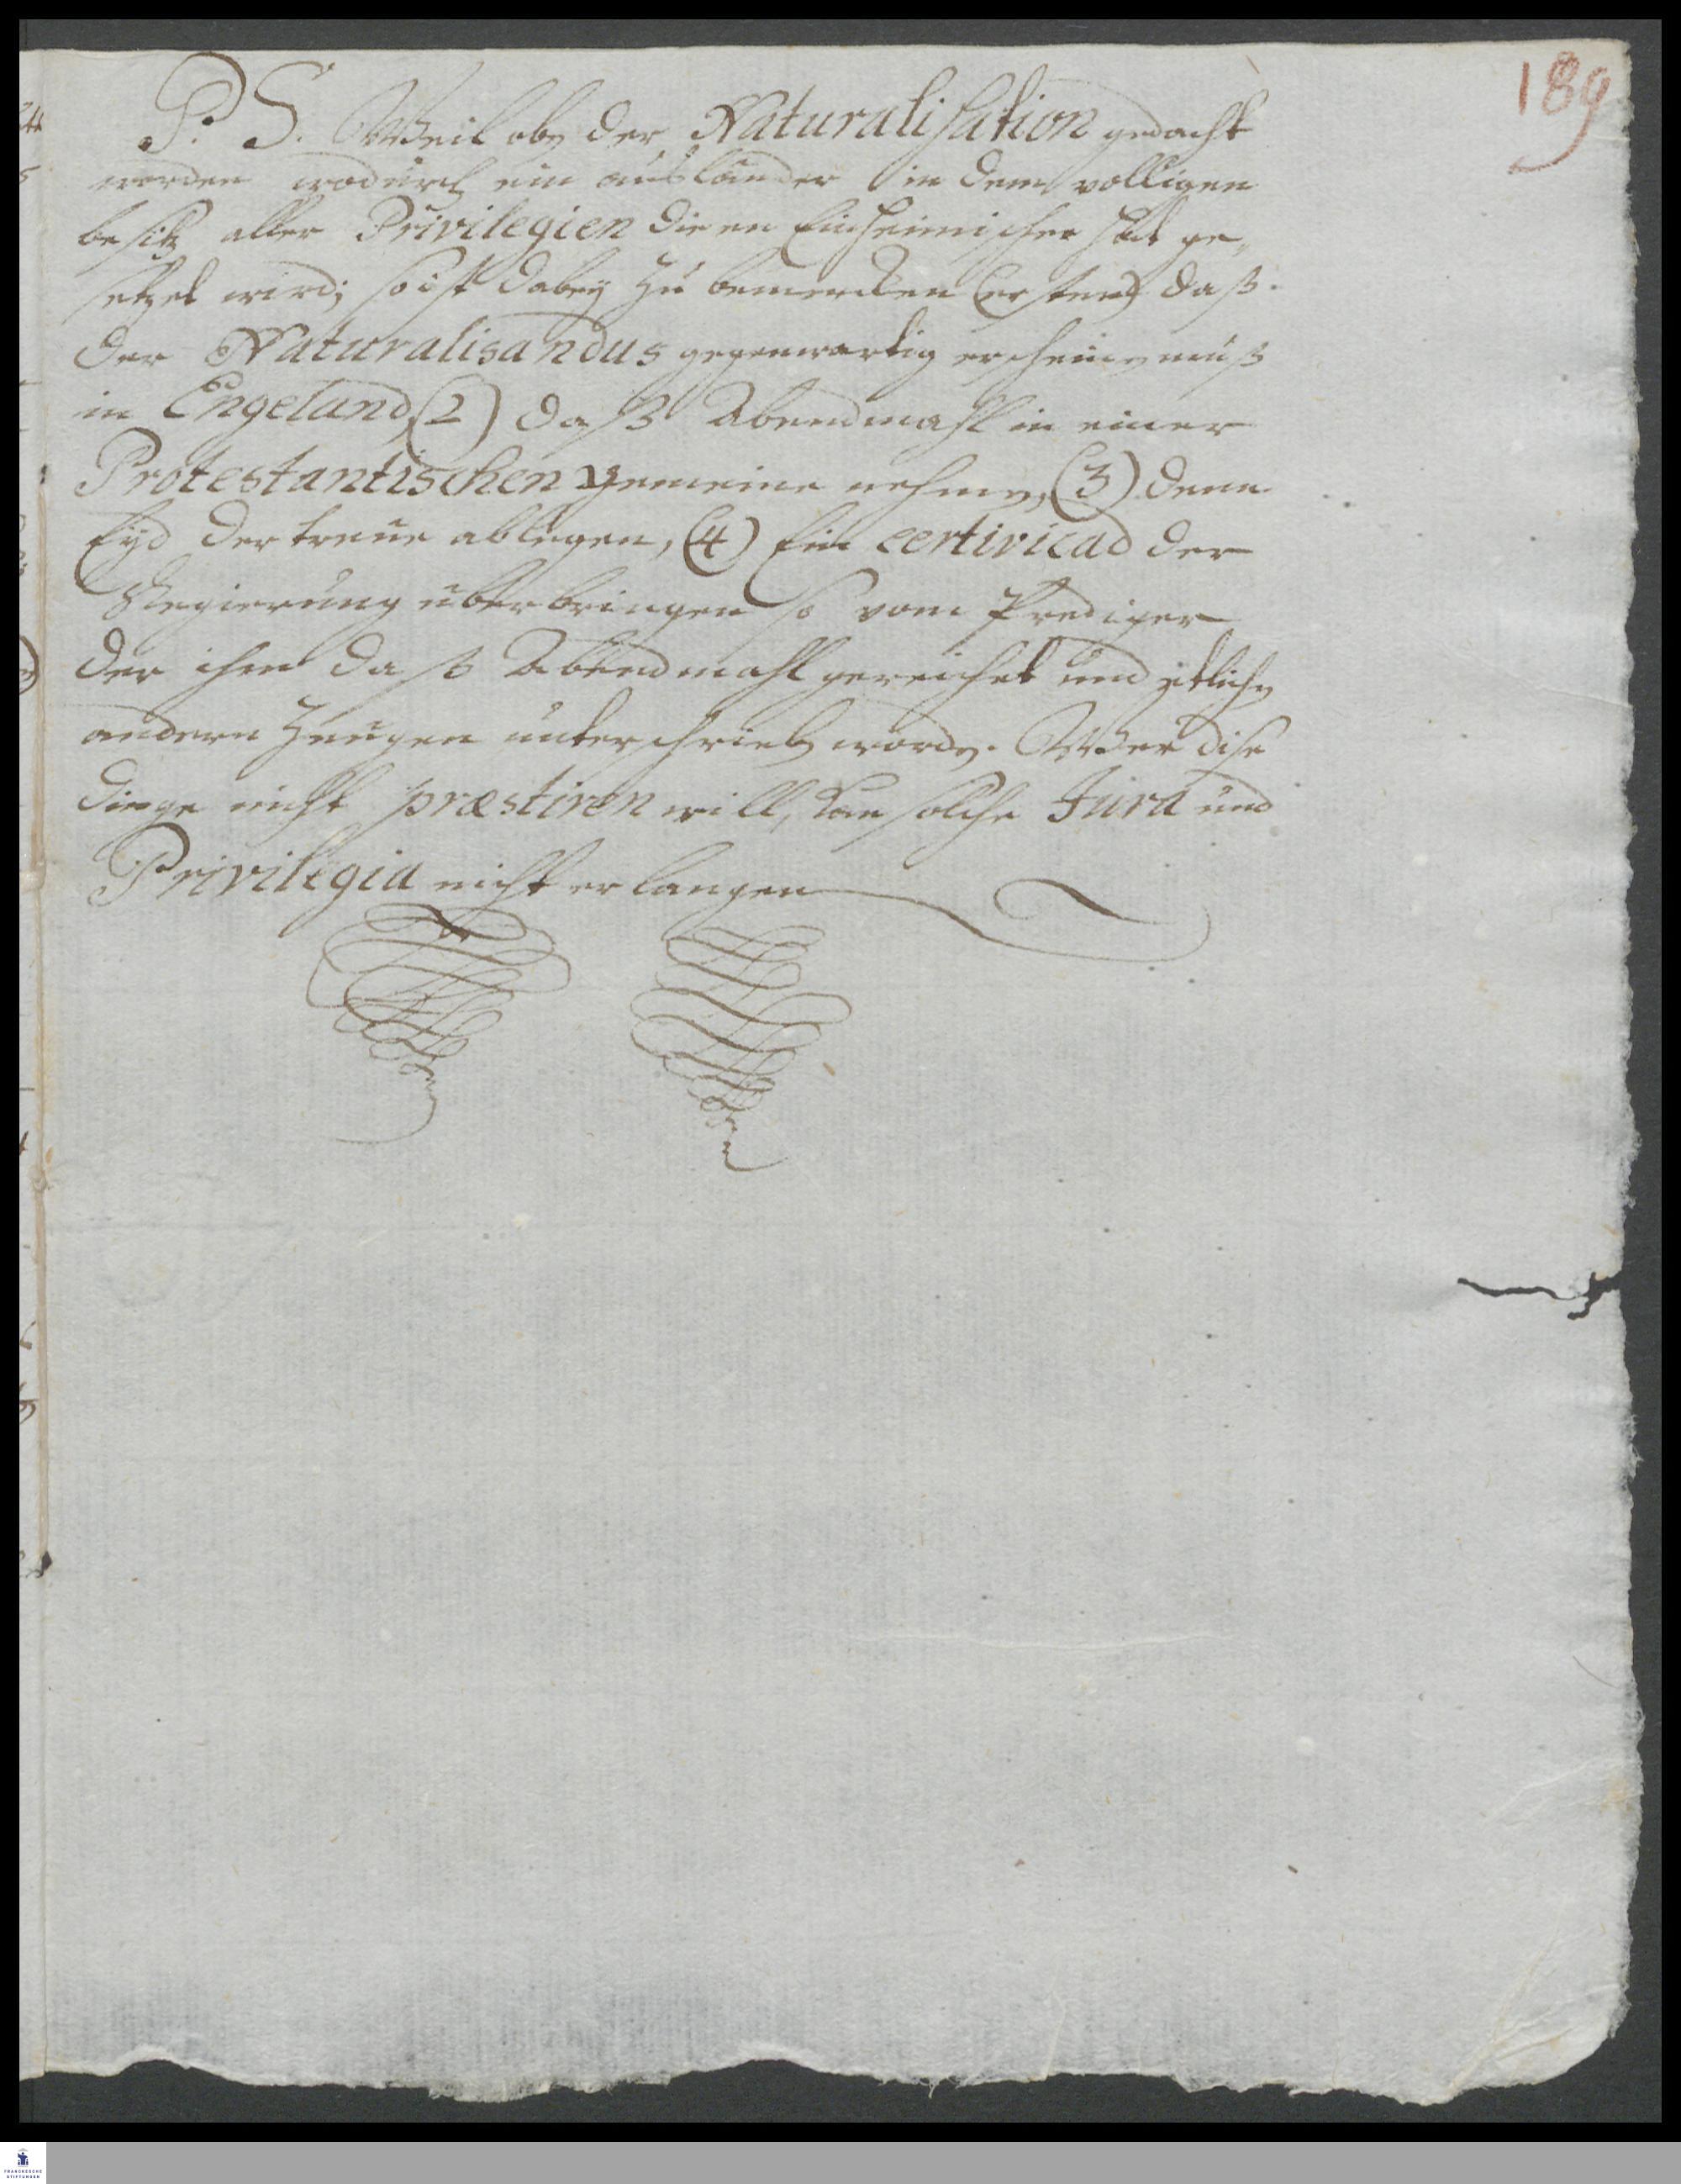 189
P. S. Weil oben der Naturalisation gedacht
worden wodurch ein ausländer in dem volligen
besitz aller Privilegien die en Einheimischer hat ge-
setzet wird; so ist dabey zu bemercken (erstens) daß
der Naturalisandus gegenwartig erscheinen muß
in Engeland, (2) daß Abendmahl in einer
Protestantischen gemeine nehmen, (3) denn
Eyd der treue ablegen, (4) Ein certivicad der
Regierung uberbringen so vom Prediger
der ihm daß Abendmahl gereichet und etlichen
andern Zeugen unterschrieben worden. Wer dise
dinge nicht præstiren will, kan solche Jura und
Privilegia nicht erlangen
FRANCKESCHE
STIFTUNGEN